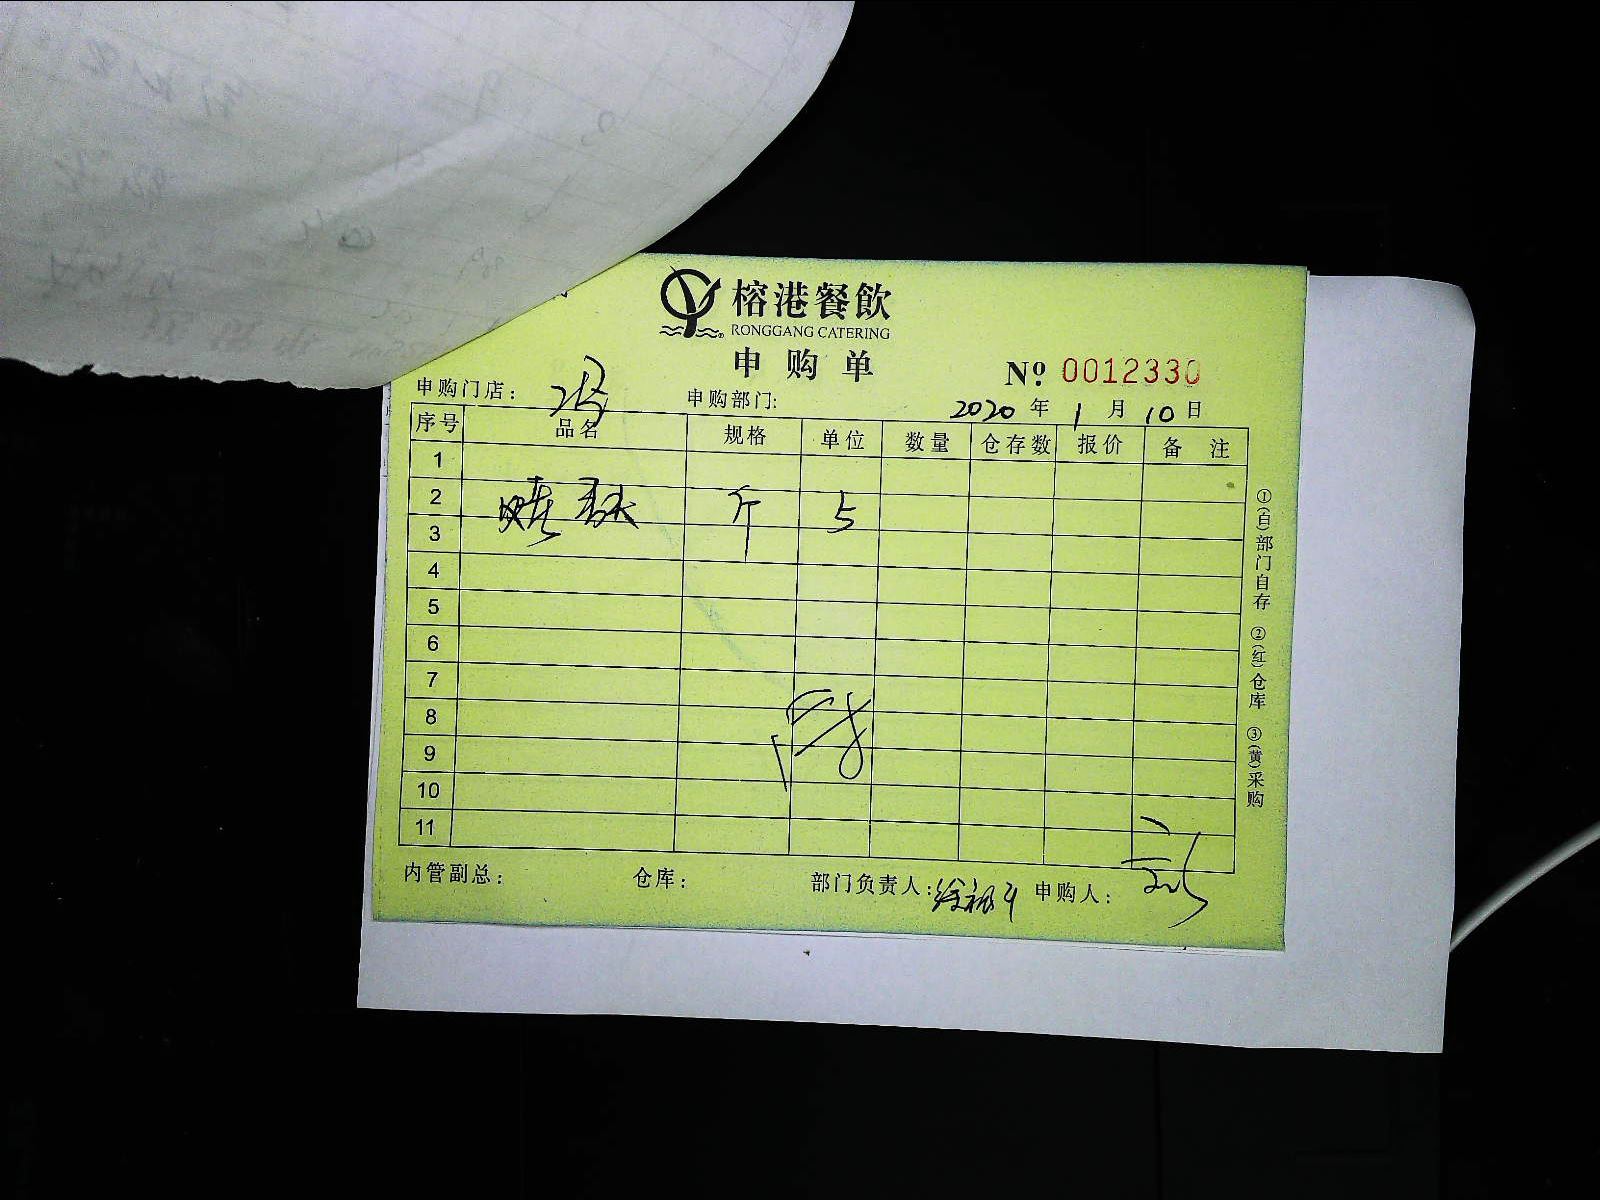 榕港餐飲
RONGGANG CATERING
申购单
№ 0012330
申购门店: 申购部门: 2020 年 1 月 10 日
序号 品名 规格 单位 数量 仓存数 报价 备 注
1
2 斤 5
3
4
5
6
7
8
9
10
11
内管副总: 仓库: 部门负责人: 申购人:
①(白)部门自存 ②(红)仓库 ③(黄)采购